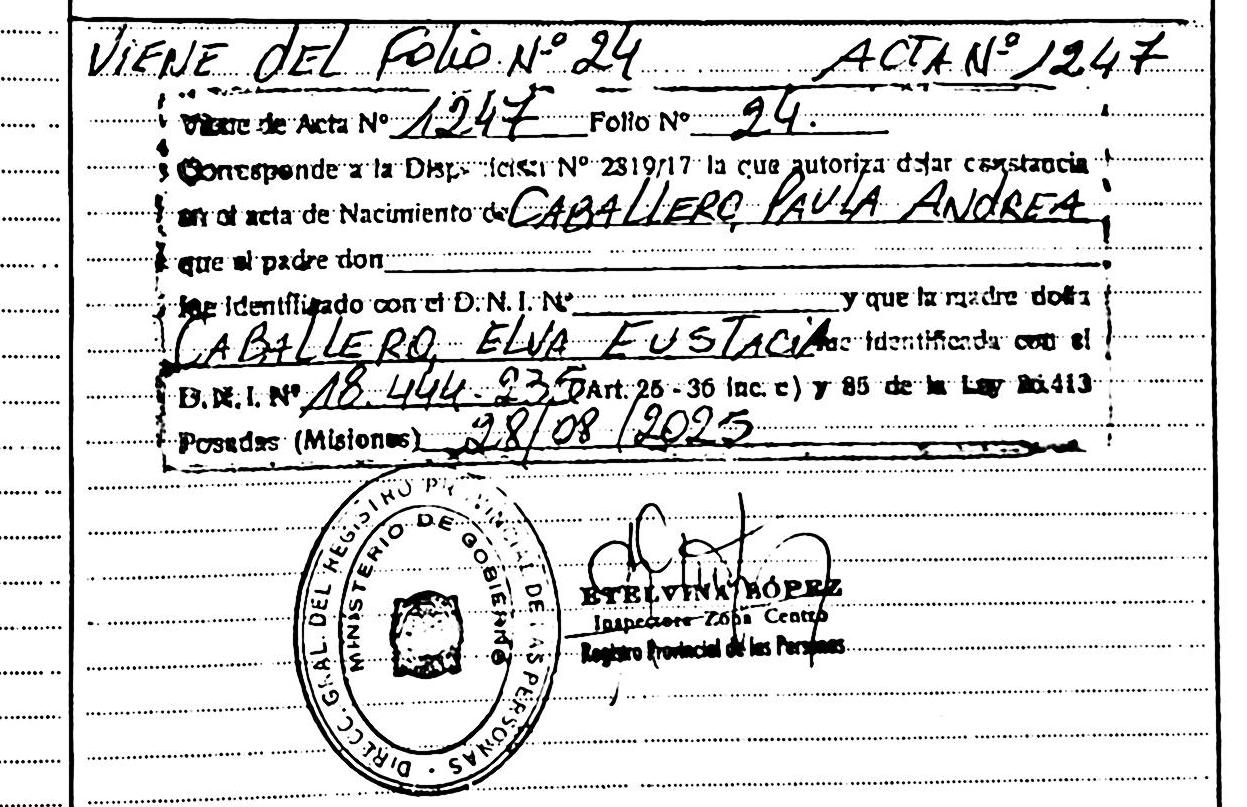 VIENE DEL FOLIO Nº 24 ACTA Nº 1247
Viene de Acta Nº 1247 Folio Nº 24.
Corresponde a la Disposición Nº 2819/17 la que autoriza dejar constancia
en el acta de Nacimiento de CABALLERO, PAULA ANDREA
que el padre don
fue identificado con el D. N. I. Nº y que la madre doña
CABALLERO, ELVA EUSTACIA fue identificada con el
D. N. I. Nº 18.444.235 (Art. 26 - 36 inc. c) y 85 de la Ley 26.413
Posadas (Misiones) 28/08/2025
DIRECC. GRAL. DEL REGISTRO PROVINCIAL DE LAS PERSONAS
MINISTERIO DE GOBIERNO
ETELVINA LÓPEZ
Inspectora Zona Centro
Registro Provincial de las Personas